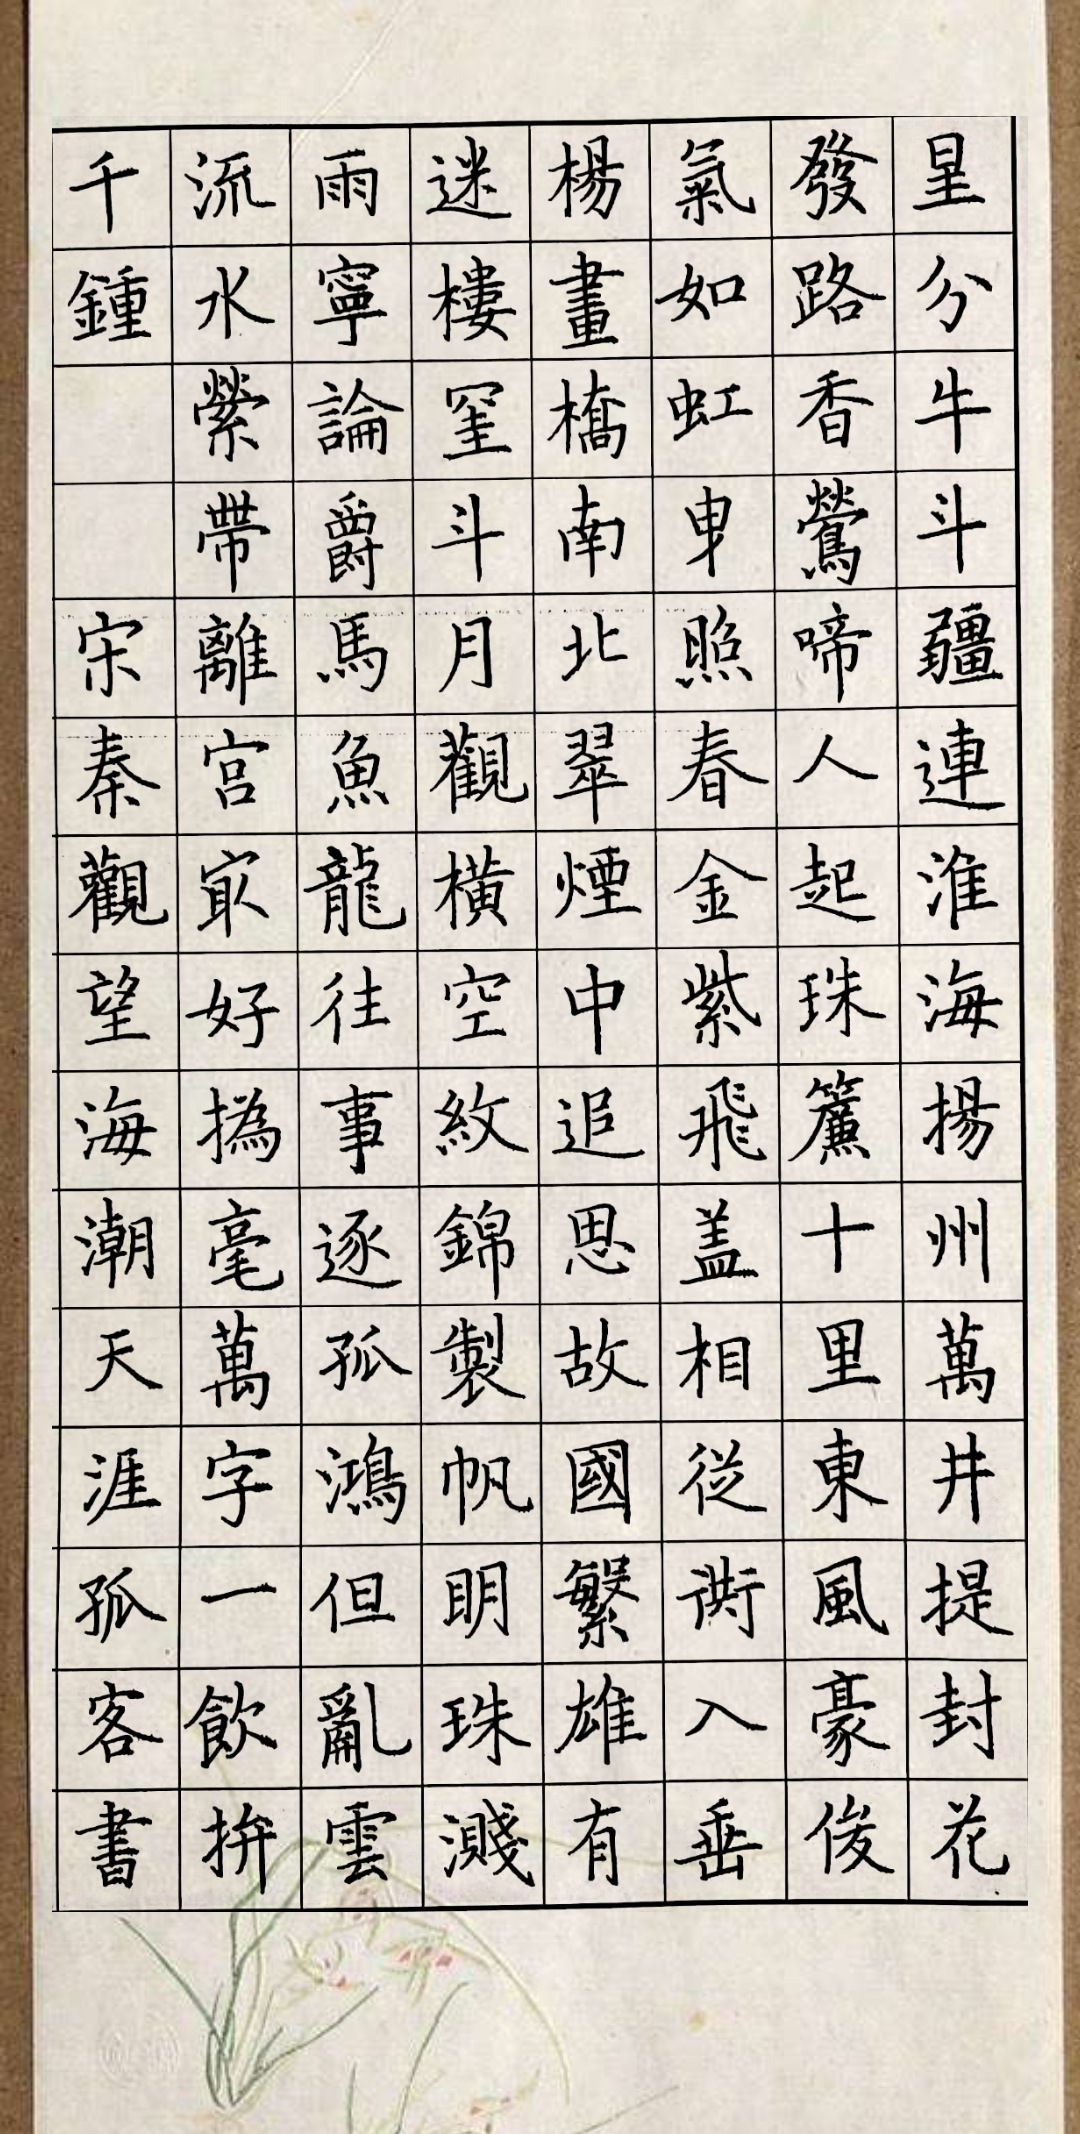 星分牛斗疆連淮海揚州萬井提封花
發路香鶯啼人起珠簾十里東風豪俊
氣如虹曳照春金紫飛盖相從衖入垂
楊畫橋南北翠煙中追思故國繁雄有
迷樓罣斗月觀橫空紋錦製帆明珠濺
雨寧論爵馬魚龍往事逐孤鴻但亂雲
流水縈帶離宮冣好撝毫萬字一飲拚
千鍾 宋秦觀望海潮天涯孤客書